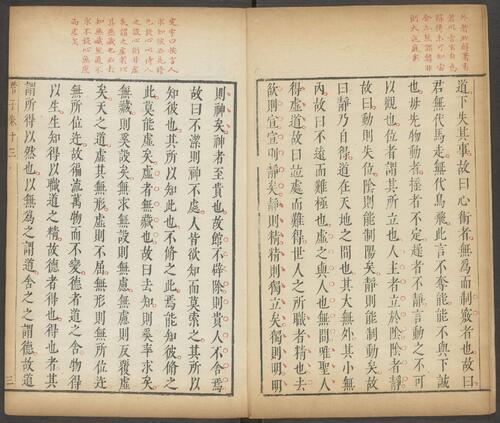 道下失其事故曰心術者無為而制竅者也故曰
君無代馬走無代鳥飛此言不奪能能不與下誠
也毋先物動者搖者不定趮者不靜言動之不可
以觀也位者謂其所立也人主者立於陰陰者靜
故曰動則失位陰則能制陽矣靜則能制動矣故
曰靜乃自得道在天地之間也其大無外其小無
內故曰不遠而難極也虛之與人也無間唯聖人
得虛道故曰並處而難得世人之所職者精也去
欲則宣宣則靜矣靜則精精則獨立矣獨則明明
則神矣神者至貴也故館不辟除則貴人不舍焉
故曰不潔則神不處人皆欲知而莫索之其所以
知彼也其所以知此也不脩之此焉能知彼脩之
此莫能虛矣虛者無藏也故曰去知則奚率求矣
無藏則奚設矣無求無設則無慮無慮則反覆虛
矣天之道虛其無形虛則不屈無形則無所位迕
無所位迕故徧流萬物而不變德者道之舍物得
以生生知得以職道之精故德者得也得也者其
謂所得以然也以無為之謂道舍之之謂德故道
管子卷十三
三